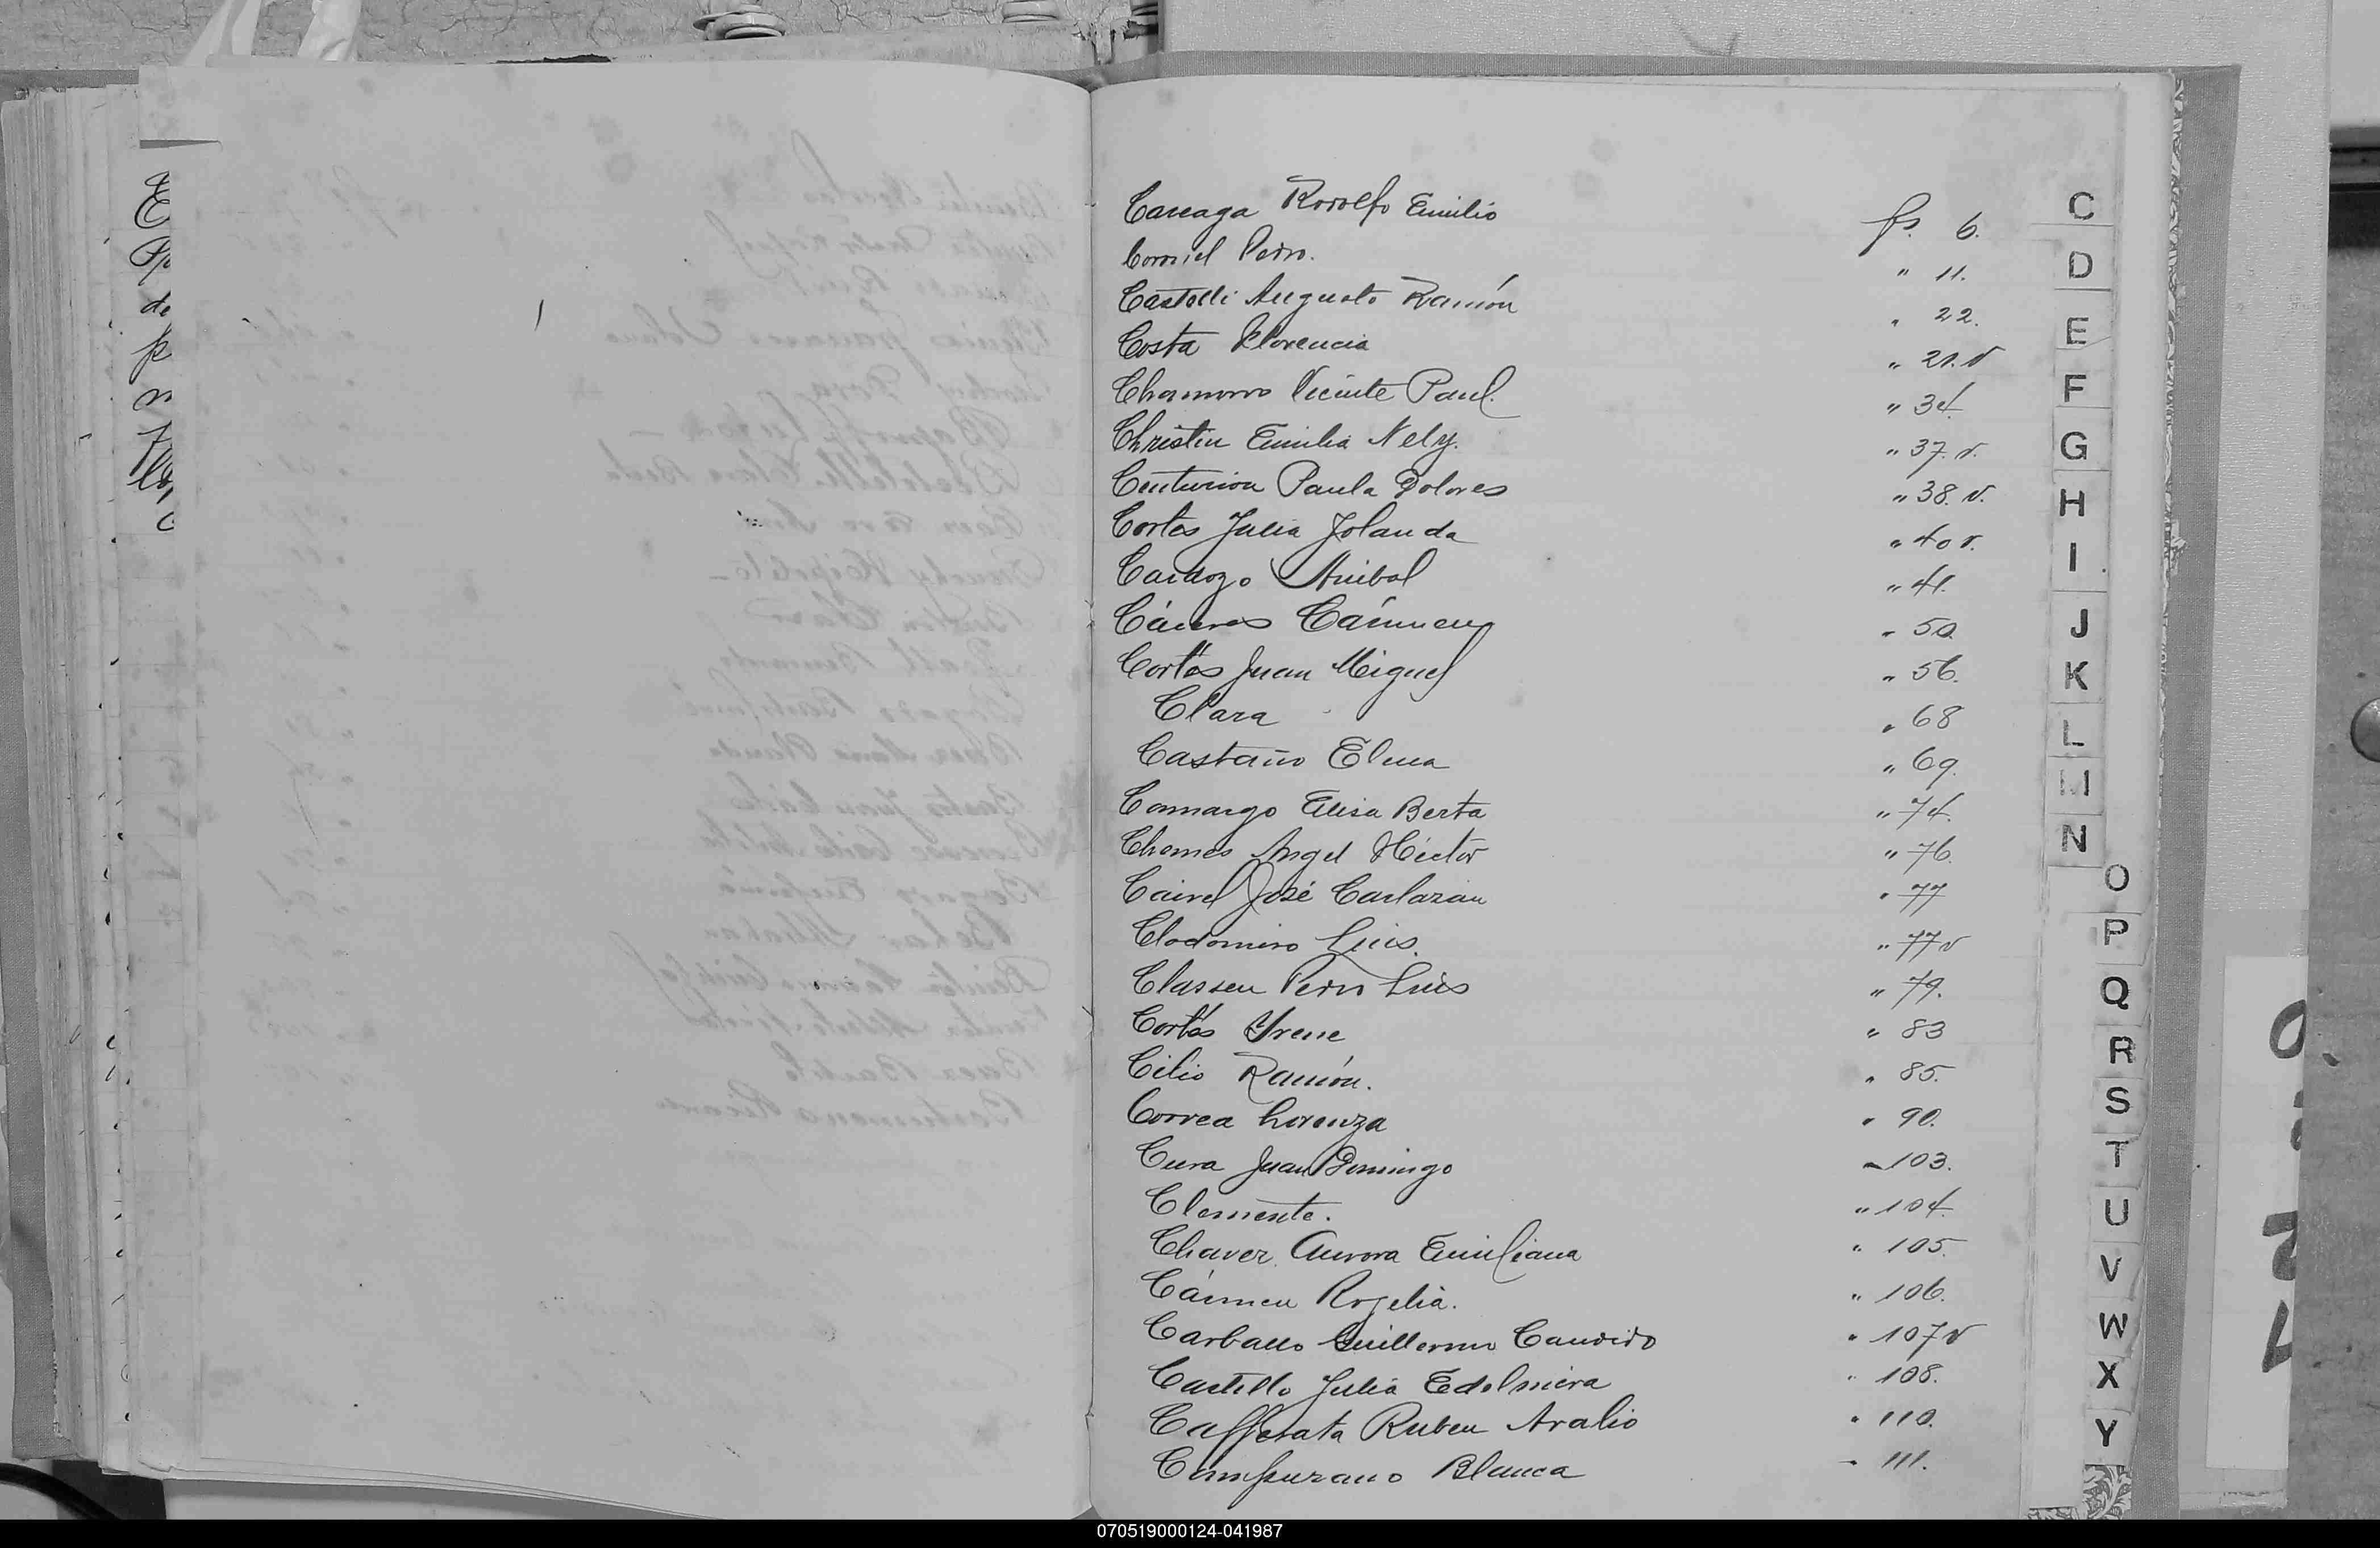 Careaga Rodolfo Emilio fs. 6.
Coroniel Pedro. " 11.
Castelli Augusto Ramón " 22.
Costa Florencia " 21. v
Chamorro Vicente Paul. " 34.
Christin Emilia Nely. " 37. v.
Centurion Paula Dolores " 38. v.
Cortés Julia Jolanda " 40 v.
Cardozo Anibal " 41.
Cáceres Cármen " 50.
Cortés Juan Miguel " 56.
Clara " 68
Castaño Elena " 69.
Camargo Elisa Berta " 74.
Chames Angel Héctor " 76.
José " 77
Clodomiro Luis. " 77 v
Classen Pedro Luis " 79.
Cortés Yrene " 83
Cilio Ramón. " 85.
Correa Lorenza " 90.
Cura Juan Domingo " 103.
Clemente. " 104.
Chavez Aurora Emiliana " 105.
Cármen Rogelia. " 106.
Carballo Guillermo Candido " 107 v
Castillo Julia Edelmira " 108.
Cafferata Ruben Aralio " 110.
Campurano Blanca " 111.
C
D
E
F
G
H
I
J
K
L
M
N
O
P
Q
R
S
T
U
V
W
X
Y
070519000124-041987